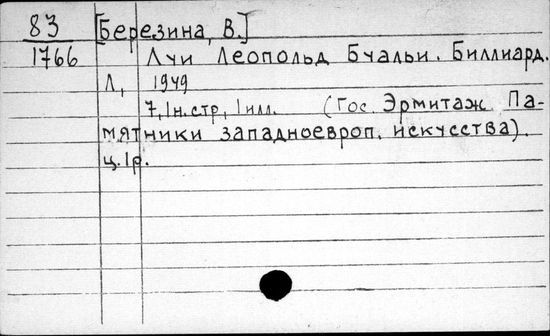 83 [Березина, В.]
1766 Луи Леопольд Буальи. Биллиард.
Л., 1949
7, 1н.стр, 1 илл. (Гос. Эрмитаж. Па-
мятники западноевроп. искусства).
ц. 1р.